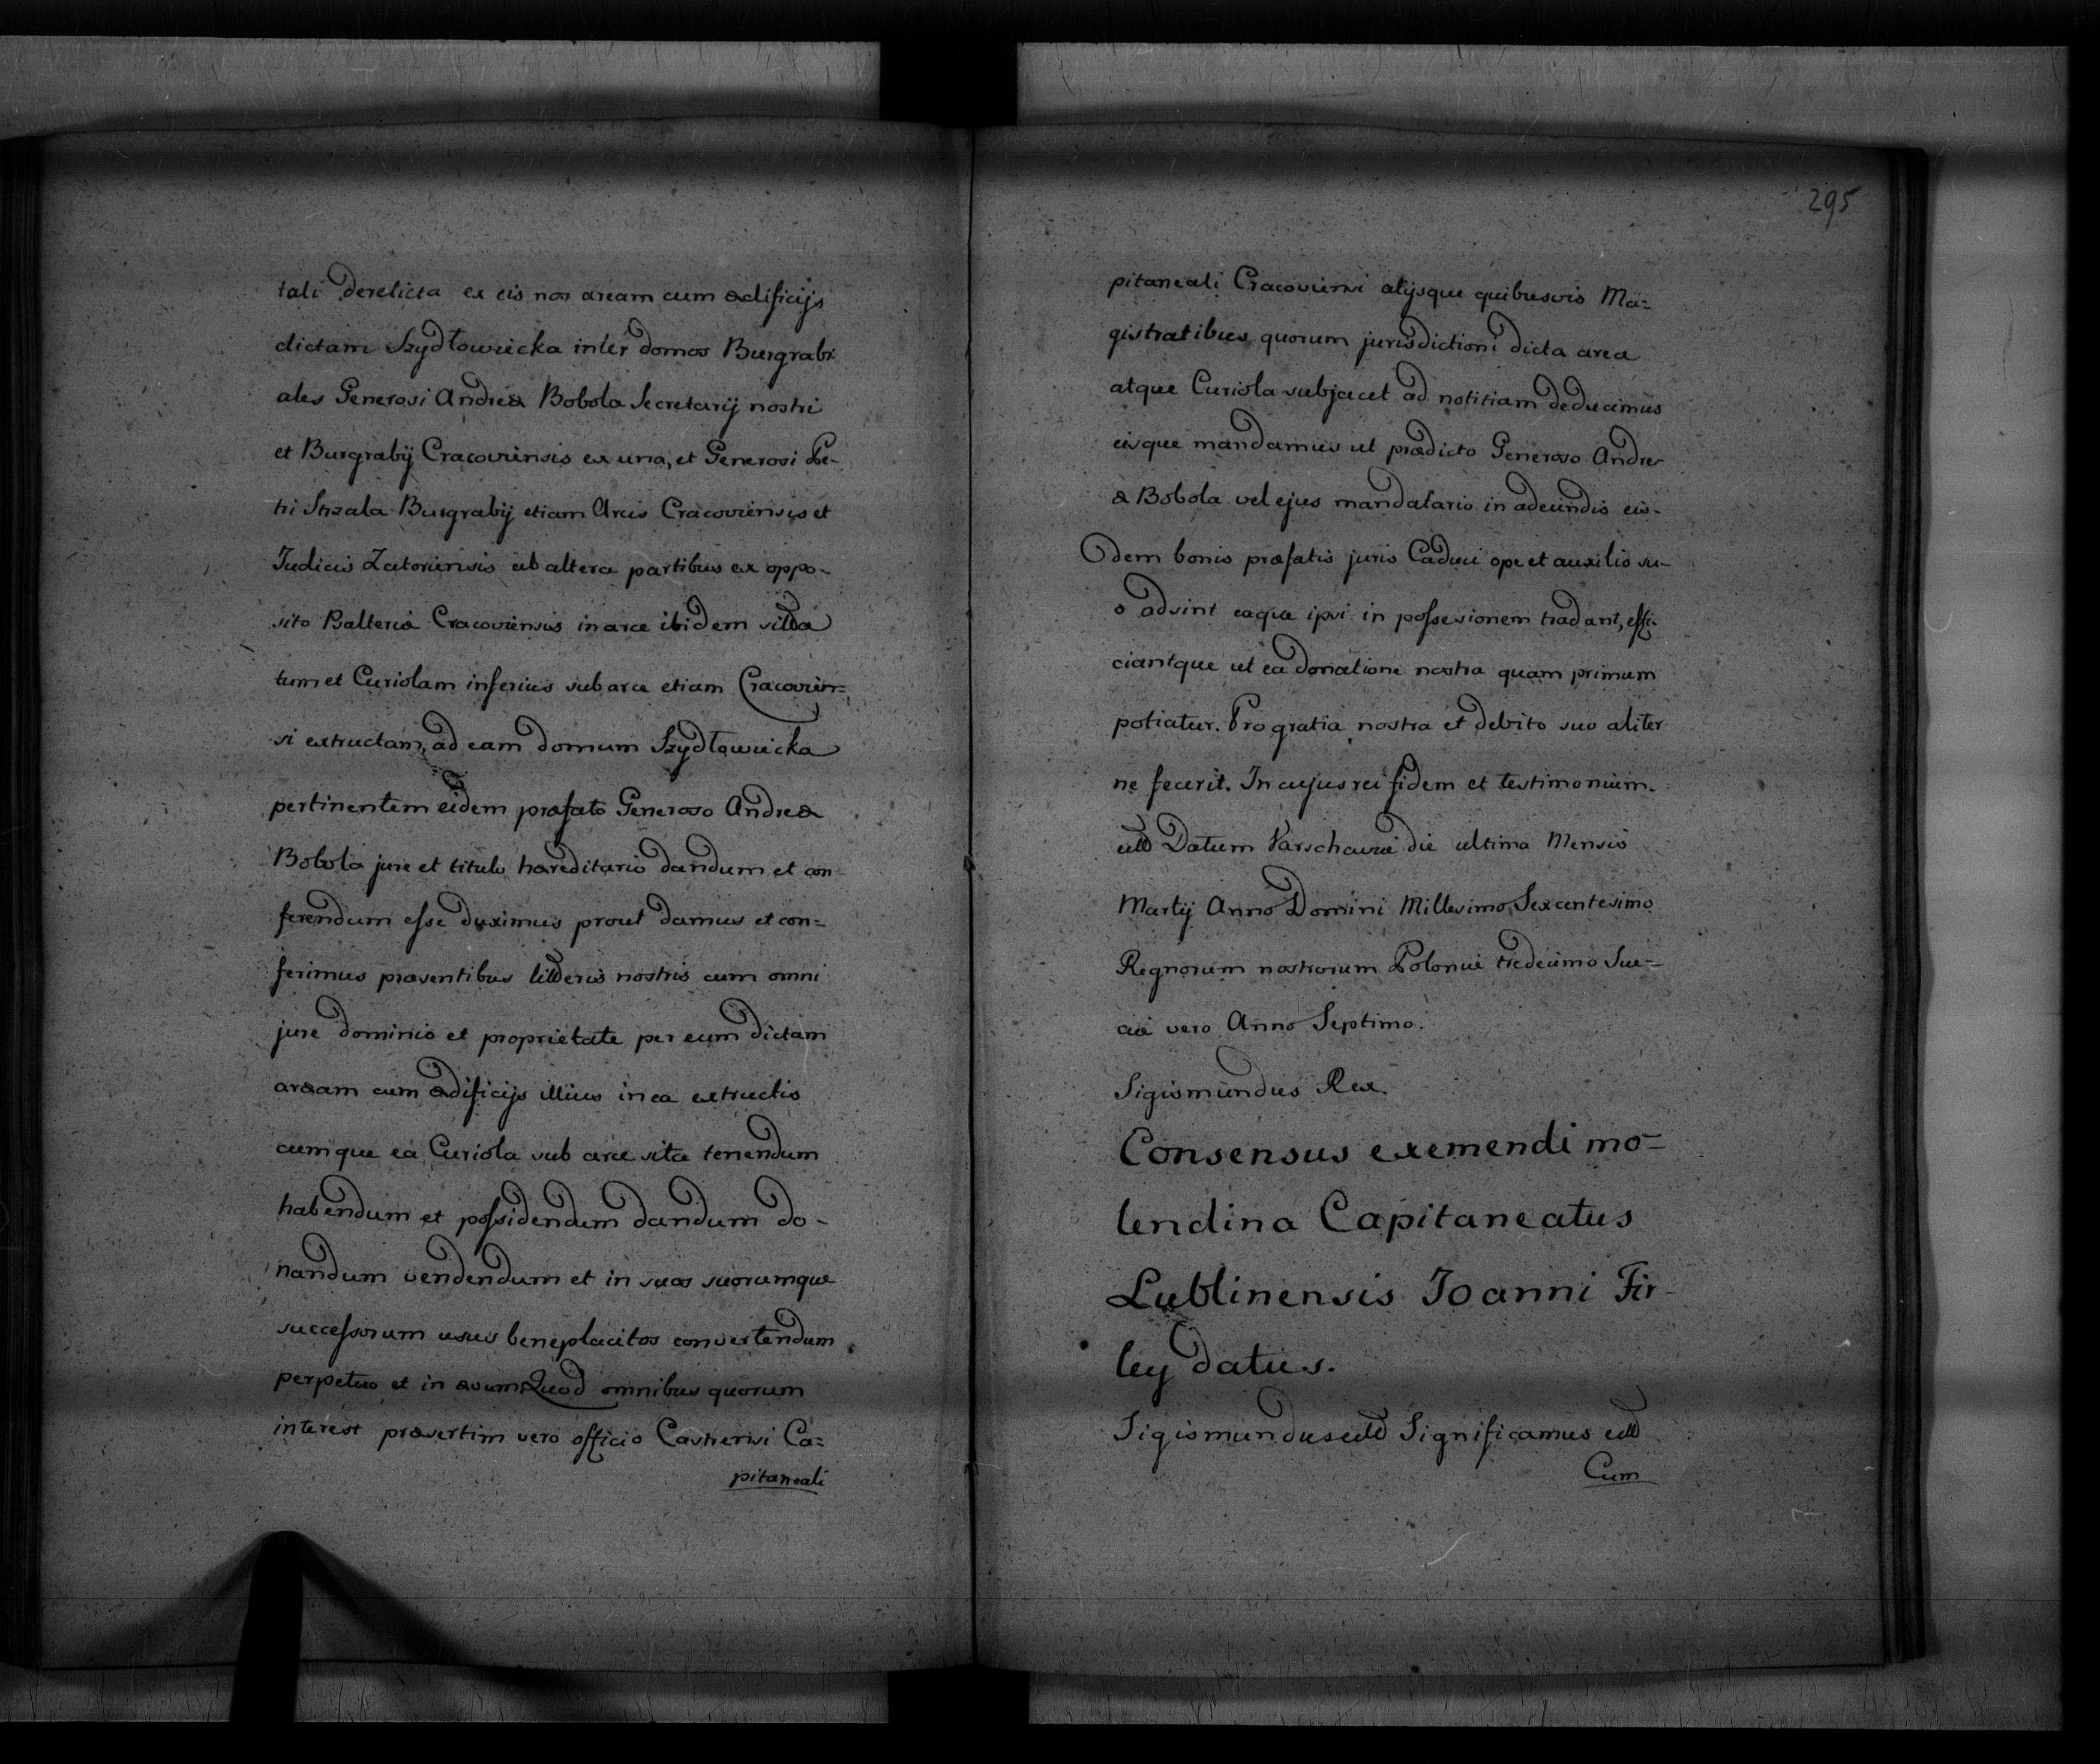 tali derelicta ex eis nos aream cum ædificijs
dictam Szydłowiecka inter domos Burgrabi
ales Generosi Andreæ Bobola Secretarij nostri
et Burgrabij Cracoviensis ex una, et Generosi Pe-
tri Strzala Burgrabij etiam Arcis Cracoviensis et
Judicis Zatoriensis ab altera partibus ex oppo-
sito Balteria Cracoviensis in arce ibidem sitta
tum et Curiolam inferius sub arce etiam Cracovien=
si extructam, ad eam domum Szydłowiecka
pertinentem eidem præfato Generoso Andreæ
Bobola jure et titulo hæreditario dandum et con-
ferendum esse duximus prout damus et con=
ferimus præsentibus litteris nostris cum omni
jure dominio et proprietate per eum dictam
aræam cum ædificijs illius in ea extructis
cumque ea Curiola sub arce sita tenendum
habendum et possidendum dandum do-
nandum vendendum et in suos suorumque
successorum usus beneplacitos convertendum
perpetuo et in ævum. Quod omnibus quorum
interest præsertim vero officio Castrensi Ca=
pitaneali
295
pitaneali Cracoviensi alijsque quibusvis Ma=
gistratibus quorum jurisdictioni dicta area
atque Curiola subjacet ad notitiam deducimus
eisque mandamus ut prædicto Generoso Andre-
æ Bobola vel ejus mandatario in adeundis eis-
dem bonis præfatis juris Caduci ope et auxilio su-
o adsint eaque ipsi in possesionem tradant, effi-
ciantque ut ea donatione nostra quam primum
potiatur. Pro gratia nostra et debito suo aliter
ne fecerit. In cujus rei fidem et testimonium.
ett Datum Varschaviæ die ultima Mensis
Martij Anno Domini Millesimo Sexcentesimo
Regnorum nostrorum Poloniæ tredecimo Sue=
ciæ vero Anno Septimo.
Sigismundus Rex.
Consensus exemendi mo=
lendina Capitaneatus
Lublinensis Joanni Fir-
ley datus.
Sigismundus ett Significamus ett
Cum